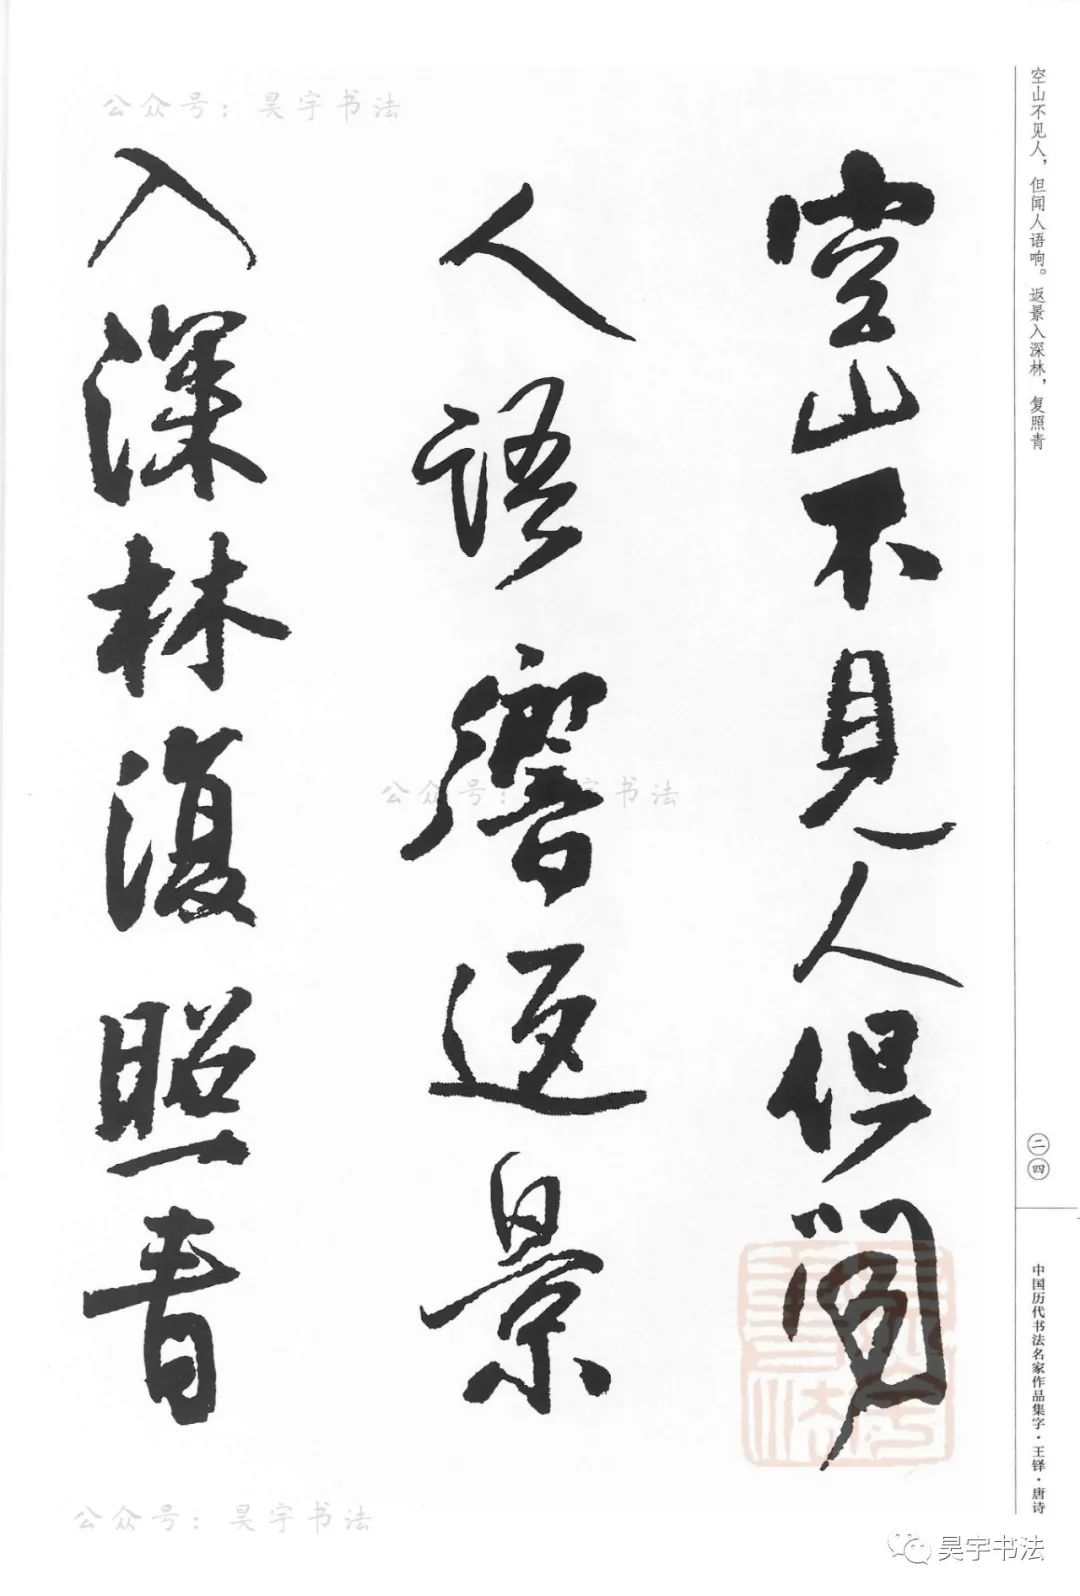 公众号：昊宇书法
空山不見人但聞
人語響返景
入深林復照青
公众号：昊宇书法
公众号：昊宇书法
空山不见人，但闻人语响。返景入深林，复照青
二四
中国历代书法名家作品集字·王铎·唐诗
昊宇书法